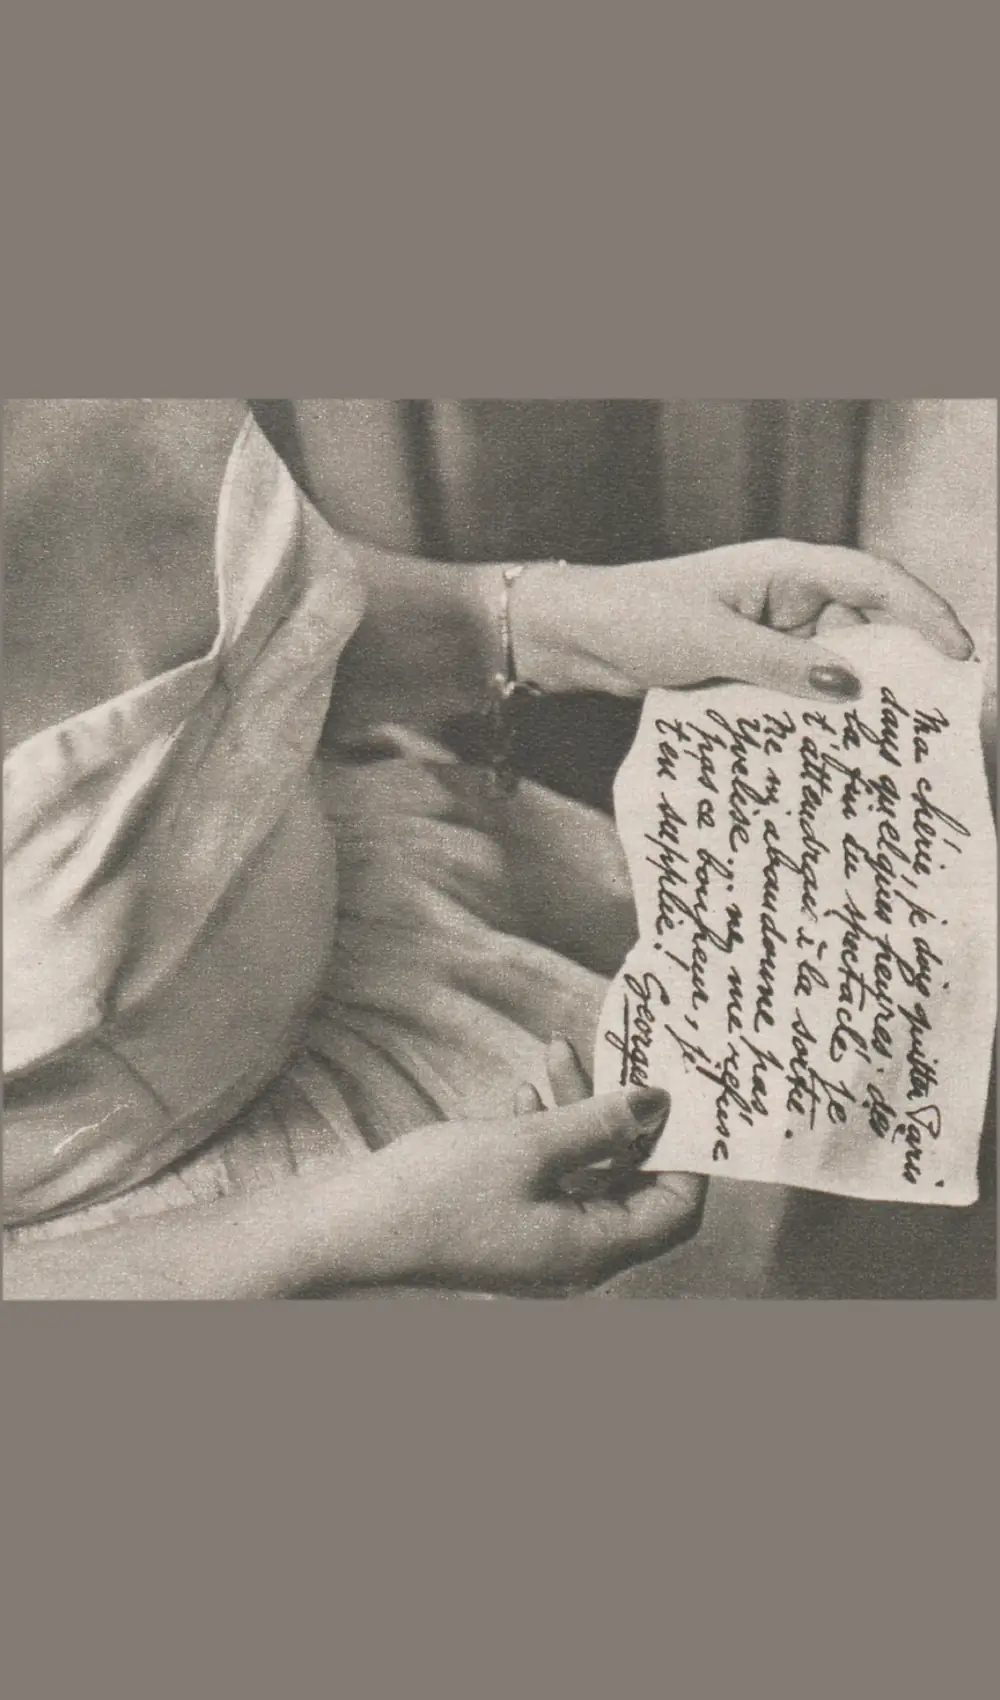 Ma chérie, je dois quitter Paris
dans quelques heures. dès
la fin du spectacle, je
t'attendrai à la sortie.
Ne m'abandonne pas
Yvelise. ne me refuse
pas ce bonheur, je
t'en supplie! Georges